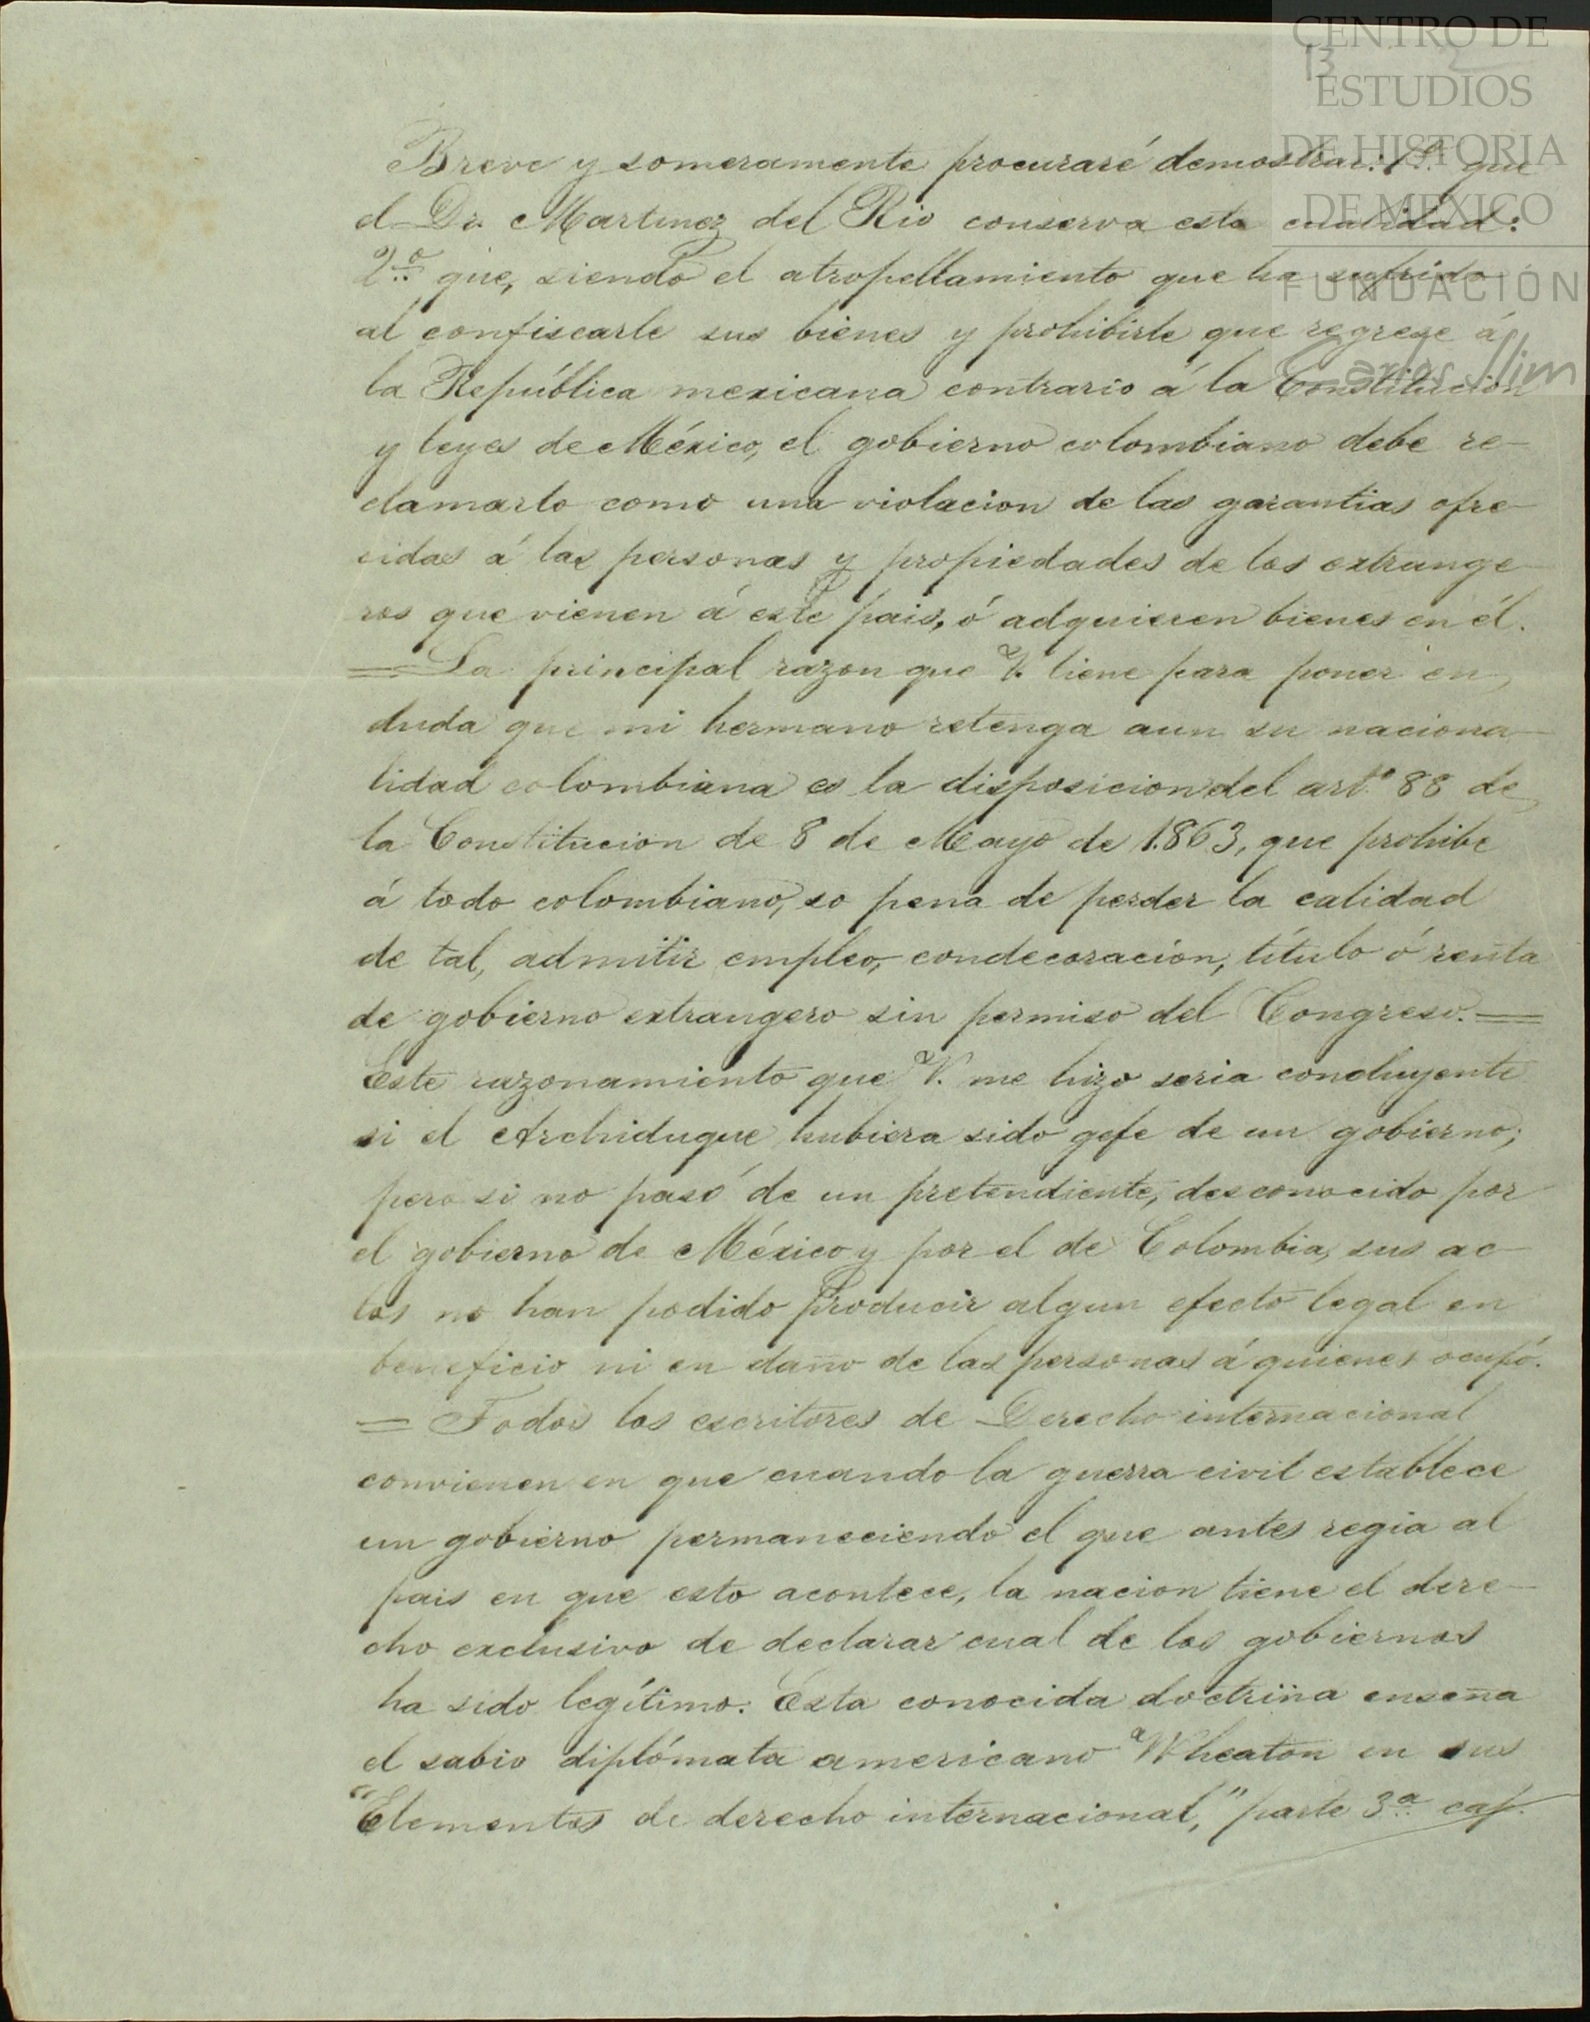 CENTRO DE
ESTUDIOS
DE HISTORIA
DE MÉXICO
FUNDACIÓN
Carlos Slim
13 2
Breve y someramente procuraré demostrar: 1º que
el Dr. Martinez del Rio conserva esta cualidad:
2º que, siendo el atropellamiento que ha sufrido
al confiscarle sus bienes y prohibirle que regrese á
la República mexicana contrario á la Constitucion
y leyes de México, el gobierno colombiano debe re-
clamarlo como una violacion de las garantias ofre-
cidas á las personas y propiedades de los extrange-
ros que vienen á este pais, ó adquieren bienes en él.
= La principal razon que V. tiene para poner en
duda que mi hermano retenga aun su naciona-
lidad colombiana es la disposicion del artº 88 de
la Constitucion de 8 de Mayo de 1.863, que prohibe
á todo colombiano, so pena de perder la calidad
de tal, admitir empleo, condecoración, título ó renta
de gobierno extrangero sin permiso del Congreso. =
Este razonamiento que V. me hizo seria concluyente
si el Archiduque hubiera sido gefe de un gobierno;
pero si no pasó de un pretendiente, desconocido por
el gobierno de México y por el de Colombia, sus ac-
tos no han podido producir algun efecto legal en
beneficio ni en daño de las personas á quienes ocupó.
= Todos los escritores de Derecho internacional
convienen en que cuando la guerra civil establece
un gobierno permaneciendo el que antes regia al
pais en que esto acontece, la nacion tiene el dere-
cho exclusivo de declarar cual de los gobiernos
ha sido legítimo. Esta conocida doctrina enseña
el sabio diplómata americano Wheaton en sus
"Elementos de derecho internacional," parte 3ª cap.